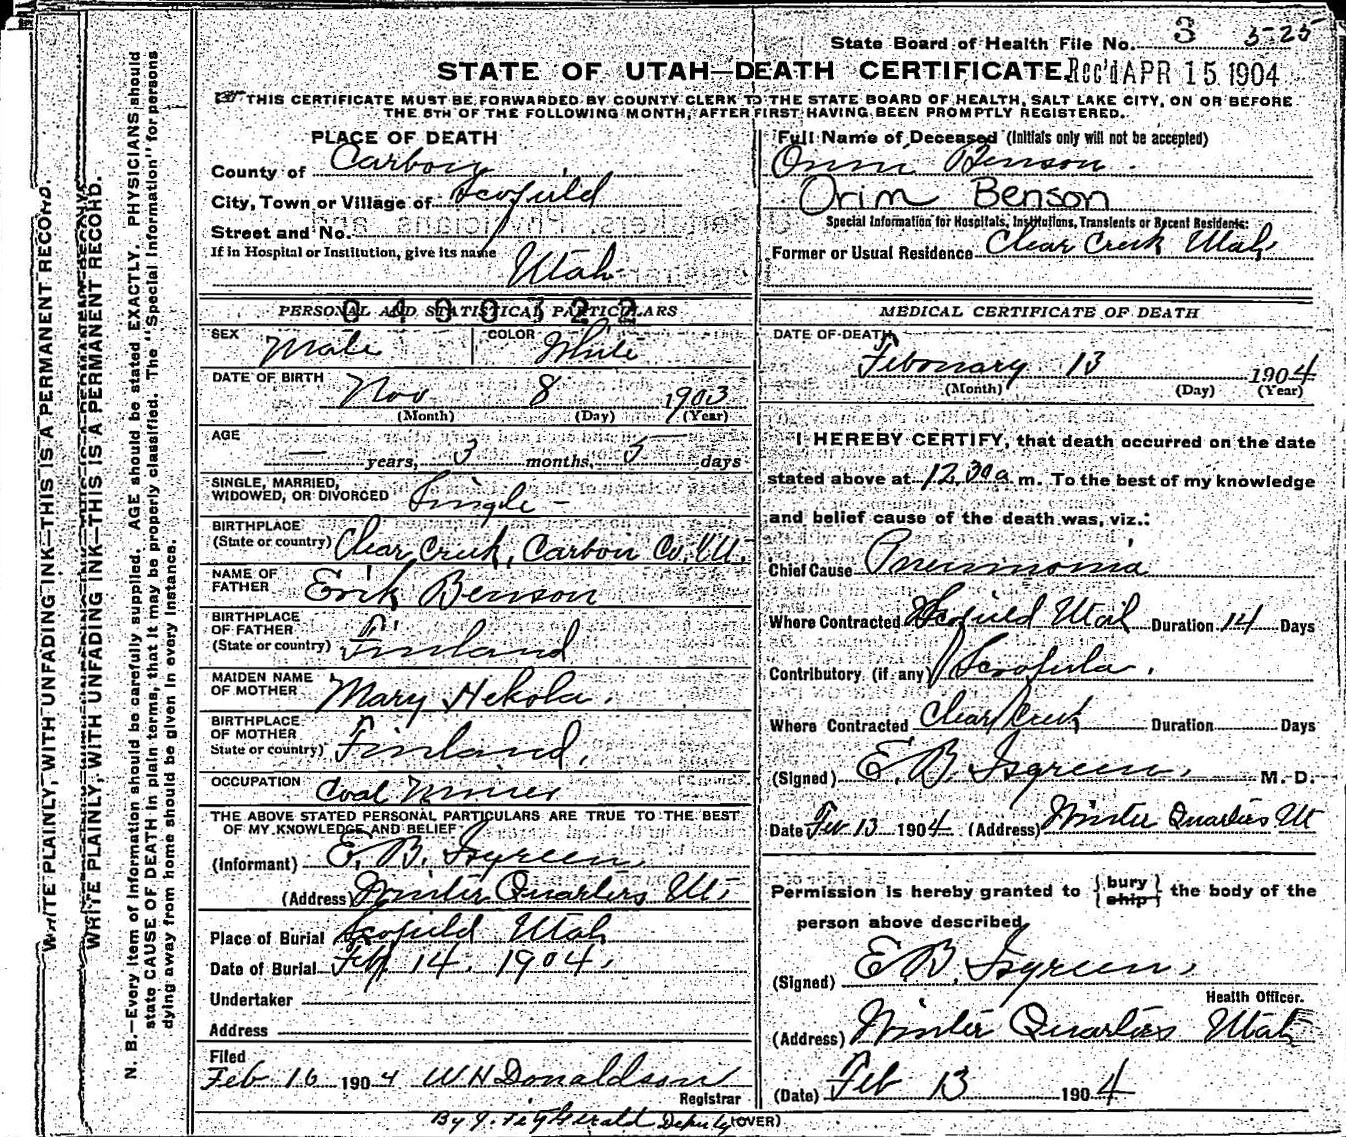 State Board of Health File No. 3 5-25
STATE OF UTAH—DEATH CERTIFICATE. Rec'd APR 15 1904
THIS CERTIFICATE MUST BE FORWARDED BY COUNTY CLERK TO THE STATE BOARD OF HEALTH, SALT LAKE CITY, ON OR BEFORE
THE 5TH OF THE FOLLOWING MONTH, AFTER FIRST HAVING BEEN PROMPTLY REGISTERED.
WRITE PLAINLY, WITH UNFADING INK—THIS IS A PERMANENT RECORD.
WRITE PLAINLY, WITH UNFADING INK—THIS IS A PERMANENT RECORD.
N. B.—Every item of information should be carefully supplied. AGE should be stated EXACTLY. PHYSICIANS should
state CAUSE OF DEATH in plain terms, that it may be properly classified. The "Special Information" for persons
dying away from home should be given in every instance.
PLACE OF DEATH
County of Carbon
City, Town or Village of Scofield
Street and No.
If in Hospital or Institution, give its name
Utah
0400322
PERSONAL AND STATISTICAL PARTICULARS
SEX Male COLOR White
DATE OF BIRTH
Nov 8 1903
(Month) (Day) (Year)
AGE
— years, 3 months, 5 days
SINGLE, MARRIED,
WIDOWED, OR DIVORCED Single —
BIRTHPLACE
(State or country) Clear Creek, Carbon Co. Ut.
NAME OF
FATHER Erik Benson
BIRTHPLACE
OF FATHER
(State or country) Finland
MAIDEN NAME
OF MOTHER Mary Hekola.
BIRTHPLACE
OF MOTHER
State or country) Finland.
OCCUPATION Coal Miner
THE ABOVE STATED PERSONAL PARTICULARS ARE TRUE TO THE BEST
OF MY KNOWLEDGE AND BELIEF
(Informant) E. B. Isgreen
(Address) Winter Quarters Ut.
Place of Burial Scofield Utah
Date of Burial Feb 14, 1904.
Undertaker
Address
Filed
Feb 16 1904 W H Donaldson
Registrar
By J. Fitzgerald Deputy (OVER)
Full Name of Deceased (Initials only will not be accepted)
Orim Benson.
Orim Benson
Special Information for Hospitals, Institutions, Transients or Recent Residents:
Former or Usual Residence Clear Creek Utah
MEDICAL CERTIFICATE OF DEATH
DATE OF DEATH
Febonary 13 1904
(Month) (Day) (Year)
I HEREBY CERTIFY, that death occurred on the date
stated above at 12.30 a m. To the best of my knowledge
and belief cause of the death was, viz.:
Chief Cause Pneumonia
Where Contracted Scofield Utah Duration 14 Days
Contributory (if any) Scrofula.
Where Contracted Clear Creek Duration Days
(Signed) E. B. Isgreen, M. D.
Date Feb 13 1904 (Address) Winter Quarters Ut
Permission is hereby granted to { bury ship } the body of the
person above described.
(Signed) E B. Isgreen,
Health Officer.
(Address) Winter Quarters Utah
(Date) Feb 13 1904